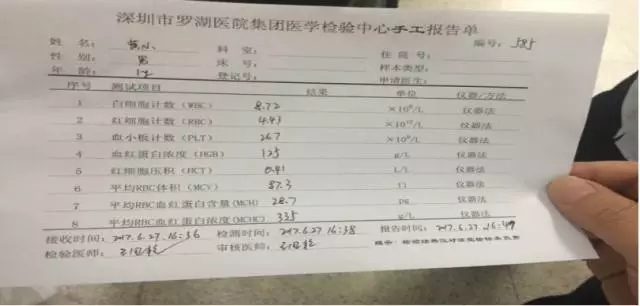 深圳市罗湖医院集团医学检验中心手工报告单
姓名： 科室： 住院号： 编号：585
性别：男 床号： 样本类型：
年龄： 登记号： 申请医生：
序号 测试项目 结果 单位 仪器/方法
1 白细胞计数（WBC） 8.72 ×10⁹/L 仪器法
2 红细胞计数（RBC） 4.43 ×10¹²/L 仪器法
3 血小板计数（PLT） 267 ×10⁹/L 仪器法
4 血红蛋白浓度（HGB） 125 g/L 仪器法
5 红细胞压积（HCT） 0.41 L/L 仪器法
6 平均RBC体积（MCV） 87.3 fl 仪器法
7 平均RBC血红蛋白含量(MCH) 28.7 pg 仪器法
8 平均RBC血红蛋白浓度(MCHC) 335 g/L 仪器法
接收时间：2017.6.27.16:36 检测时间：2017.6.27.16:38 报告时间：2017.6.27.16:49
检验医师： 审核医师： 提示：检验结果仅对送检标本负责